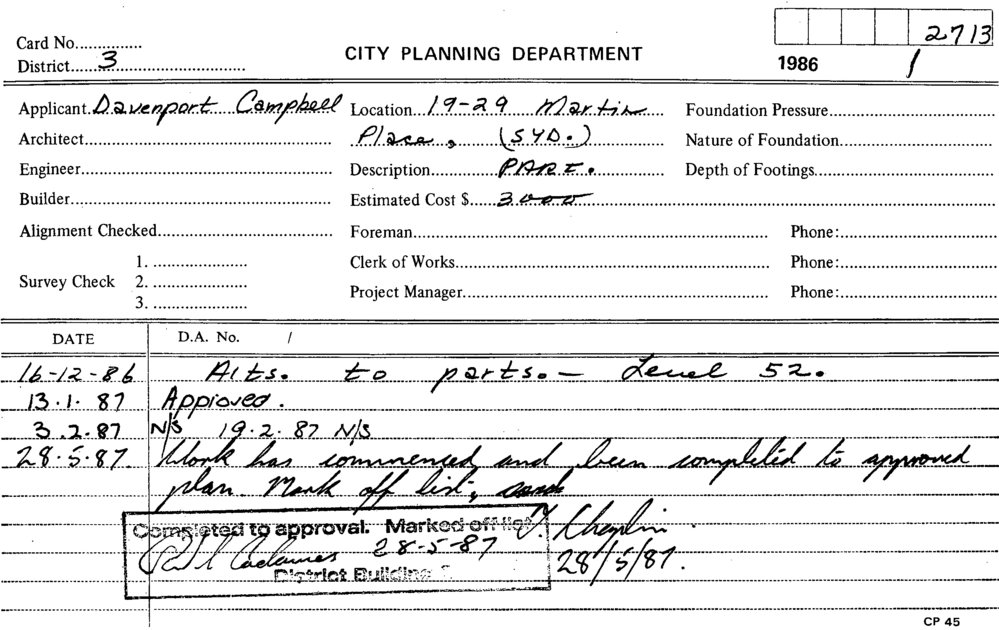 2713
Card No.
CITY PLANNING DEPARTMENT
District 3
1986 1
Applicant Davenport Campbell Location 19-29 Martin Foundation Pressure
Architect Place, (SYD.) Nature of Foundation
Engineer Description PART. Depth of Footings
Builder Estimated Cost $ 3000
Alignment Checked Foreman Phone:
1. Clerk of Works Phone:
Survey Check 2.
3. Project Manager Phone:
DATE D.A. No. /
16-12-86 Alts. to parts. - Level 52.
13.1.87 Approved.
3.2.87 N/S 19.2.87 N/S
28.5.87. Work has commenced and been completed to approved
plan. Mark off list,
Completed to approval. Marked off list
28-5-87
District Building
28/5/87.
CP 45